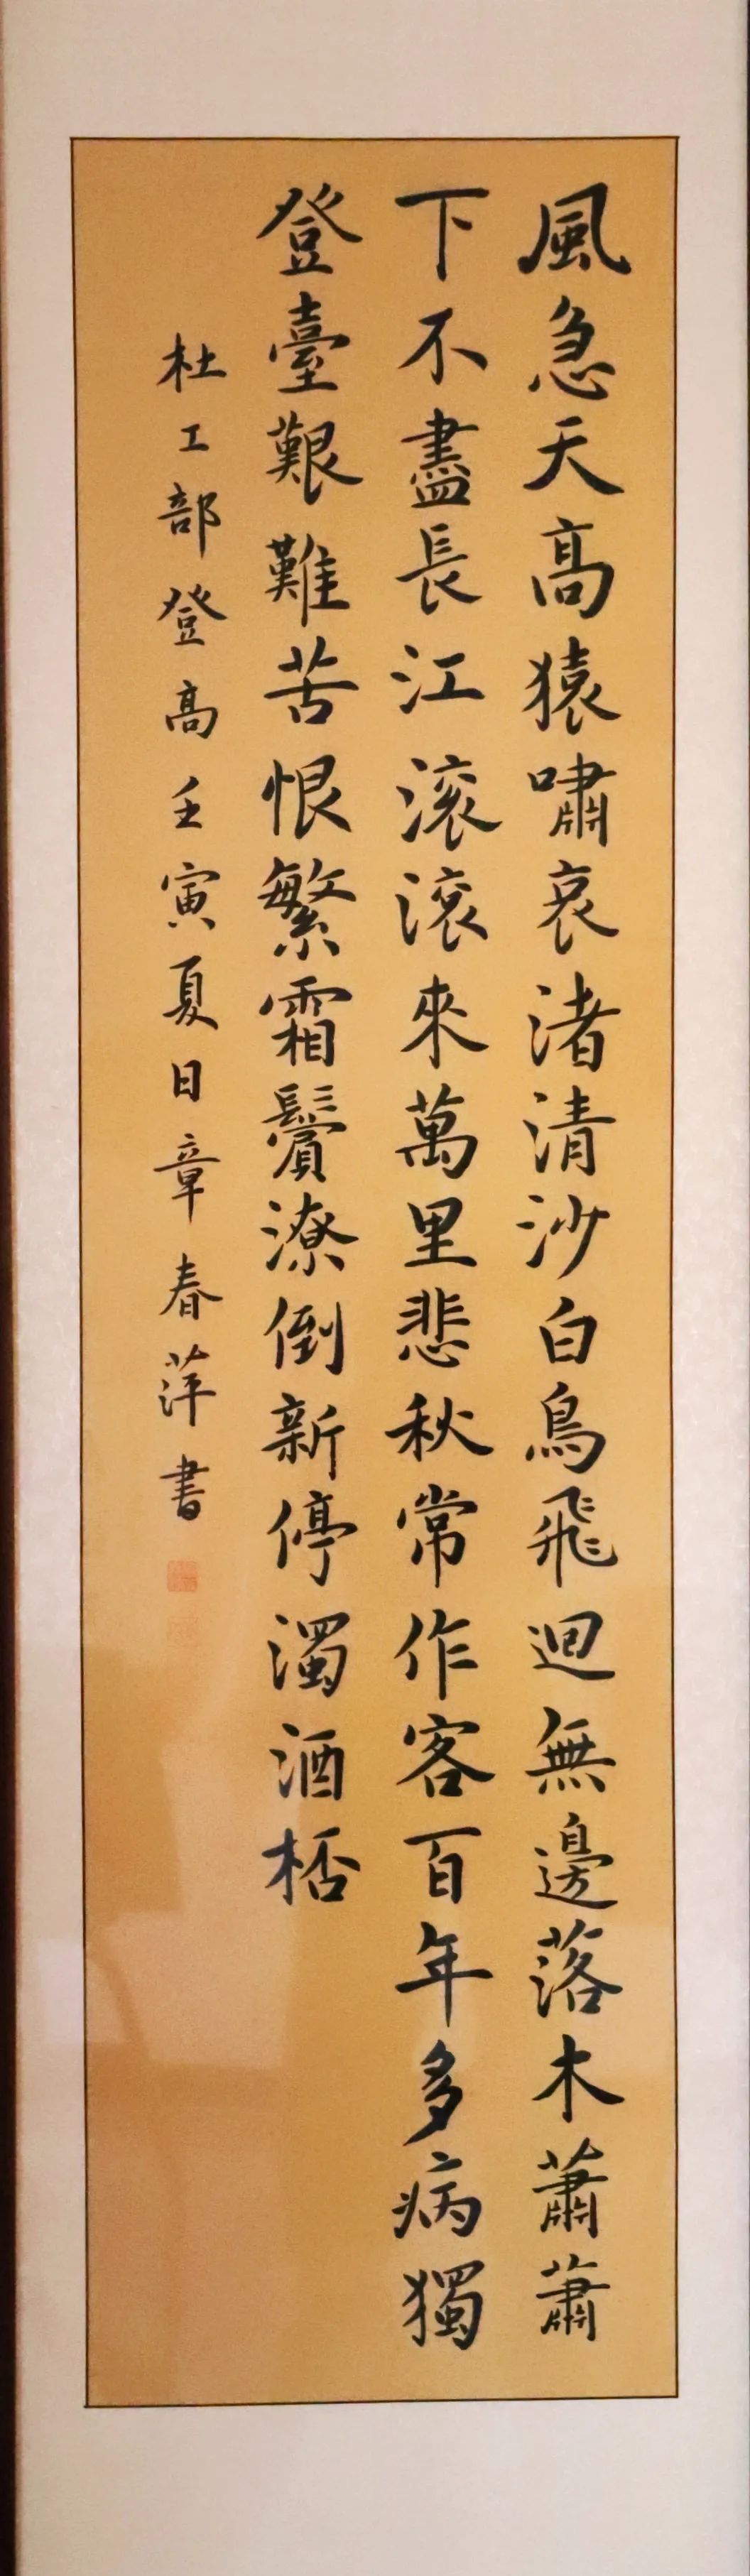 風急天高猿嘯哀渚清沙白鳥飛迴無邊落木蕭蕭
下不盡長江滚滚來萬里悲秋常作客百年多病獨
登臺艱難苦恨繁霜鬢潦倒新停濁酒桮
杜工部登高壬寅夏日章春萍書